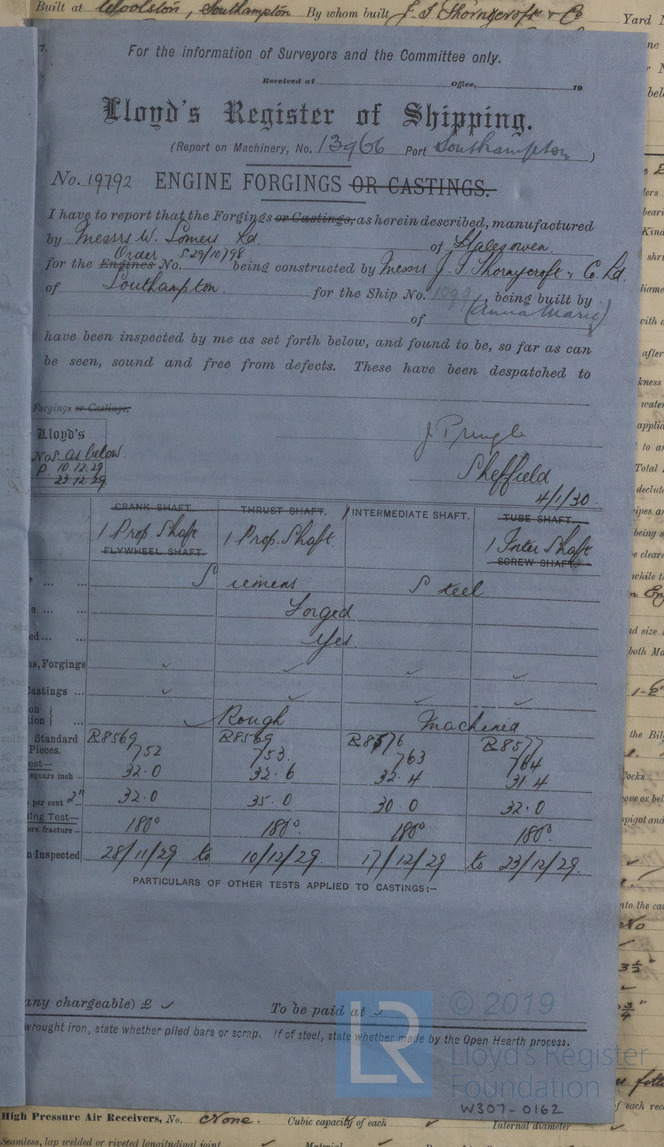 Built at Woolston, Southampton By whom built J. I. Thornycroft & Co Yard N
For the information of Surveyors and the Committee only.
Received at Office, 19
Lloyd's Register of Shipping.
(Report on Machinery, No. 13966 Port Southampton)
No. 19792 ENGINE FORGINGS OR CASTINGS.
I have to report that the Forgings or Castings, as herein described, manufactured
by Messrs W. Somers Ld. of Halesowen
for the Engines Order No. S 29/10/98 being constructed by Messrs J. I. Thornycroft & Co. Ld.
of Southampton. for the Ship No. , being built by
of (Anna Marie)
have been inspected by me as set forth below, and found to be, so far as can
be seen, sound and free from defects. These have been despatched to
Forgings or Castings.
Lloyd's
Nos. as below.
P 10.12.29
23.12.29
J. Pringle
Sheffield
4/1/30.
CRANK SHAFT. THRUST SHAFT. 1 INTERMEDIATE SHAFT. TUBE SHAFT.
1 Prop. Shaft 1 Prop. Shaft. 1 Inter Shaft
FLYWHEEL SHAFT. SCREW SHAFT.
Siemens Steel
Forged
ed... Yes.
s, Forgings ✓ ✓ ✓ ✓
astings ... ✓ ✓ ✓ ✓
on }
tion } ... Rough Machined
Standard R8569 R8569 R8576 R8577
Pieces. 752 753. 763 764
square inch ... 32.0 32.6 32.4 31.4
per cent 2" 32.0 35.0 30.0 32.0
ing Test—
ere fracture ... 180° 180°. 180° 180°.
n Inspected 28/11/29 to 10/12/29. 17/12/29 to 23/12/29.
PARTICULARS OF OTHER TESTS APPLIED TO CASTINGS:—
any chargeable) £ ✓ To be paid at ✓
wrought iron, state whether piled bars or scrap. If of steel, state whether made by the Open Hearth process.
LR
© 2019
Lloyd's Register
Foundation
W307-0162
High Pressure Air Receivers, No. None. Cubic capacity of each Internal diameter
Seamless, lap welded or riveted longitudinal joint Material